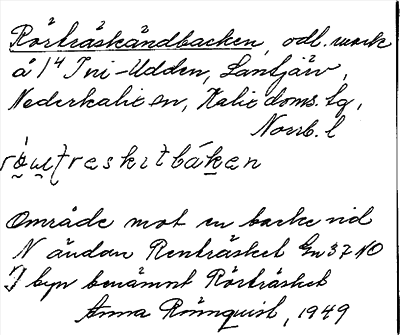 Rörträskändbacken, odl. mark
å 1⁴ Ini-Udden, Lantjärv,
Nederkalix sn, Kalix doms. lg,
Norrb. l
Område mot en backe vid
N ändan Renträsket Gn 37 NO
I byn benämnt Rörträsket
Anna Rönnquist, 1949